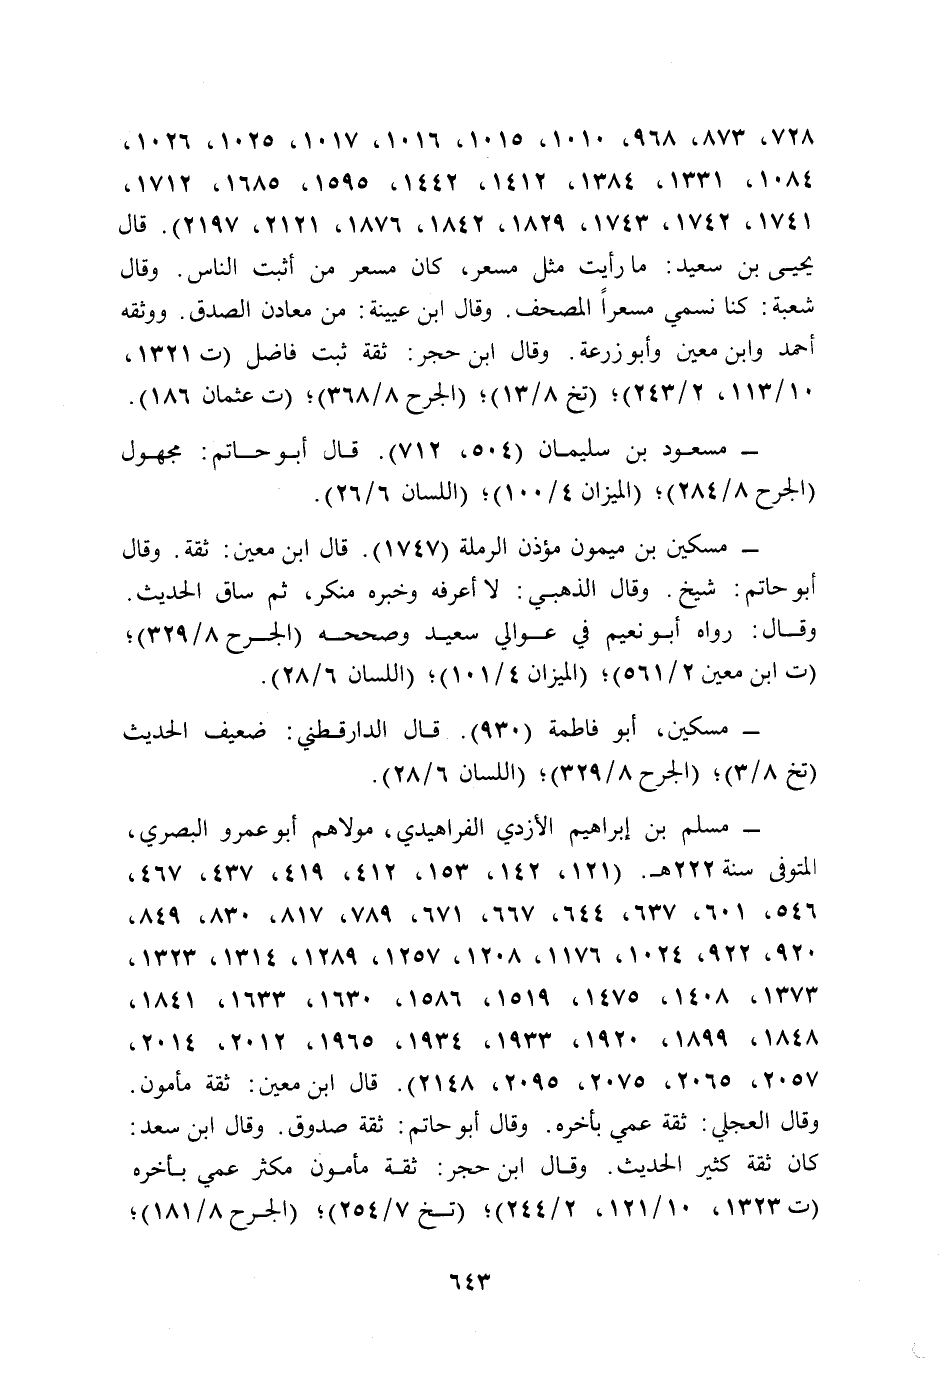 ٧٢٨، ٨٧٣، ٩٦٨، ١٠١٠، ١٠١٥، ١٠١٦، ١٠١٧، ١٠٢٥، ١٠٢٦،
١٠٨٤، ١٣٣١، ١٣٨٤، ١٤١٢، ١٤٤٢، ١٥٩٥، ١٦٨٥، ١٧١٢،
١٧٤١، ١٧٤٢، ١٧٤٣، ١٨٢٩، ١٨٤٢، ١٨٧٦، ٢١٢١، ٢١٩٧). قال
يحيى بن سعيد: ما رأيت مثل مسعر، كان مسعر من أثبت الناس. وقال
شعبة: كنا نسمي مسعراً المصحف. وقال ابن عيينة: من معادن الصدق. ووثقه
أحمد وابن معين وأبو زرعة. وقال ابن حجر: ثقة ثبت فاضل (ت ١٣٢١،
١١٣/١٠، ٢٤٣/٢)؛ (تخ ١٣/٨)؛ (الجرح ٣٦٨/٨)؛ (ت عثمان ١٨٦).
– مسعود بن سليمان (٥٠٤، ٧١٢). قال أبو حاتم: مجهول
(الجرح ٢٨٤/٨)؛ (الميزان ١٠٠/٤)؛ (اللسان ٢٦/٦).
– مسكين بن ميمون مؤذن الرملة (١٧٤٧). قال ابن معين: ثقة. وقال
أبو حاتم: شيخ. وقال الذهبي: لا أعرفه وخبره منكر، ثم ساق الحديث.
وقال: رواه أبو نعيم في عوالي سعيد وصححه (الجرح ٣٢٩/٨)؛
(ت ابن معين ٥٦١/٢)؛ (الميزان ١٠١/٤)؛ (اللسان ٢٨/٦).
– مسكين، أبو فاطمة (٩٣٠). قال الدارقطني: ضعيف الحديث
(تخ ٣/٨)؛ (الجرح ٣٢٩/٨)؛ (اللسان ٢٨/٦).
– مسلم بن إبراهيم الأزدي الفراهيدي، مولاهم أبو عمرو البصري،
المتوفى سنة ٢٢٢هـ. (١٢١، ١٤٢، ١٥٣، ٤١٢، ٤١٩، ٤٣٧، ٤٦٧،
٥٤٦، ٦٠١، ٦٣٧، ٦٤٤، ٦٦٧، ٦٧١، ٧٨٩، ٨١٧، ٨٣٠، ٨٤٩،
٩٢٠، ٩٢٢، ١٠٢٤، ١١٧٦، ١٢٠٨، ١٢٥٧، ١٢٨٩، ١٣١٤، ١٣٢٣،
١٣٧٣، ١٤٠٨، ١٤٧٥، ١٥١٩، ١٥٨٦، ١٦٣٠، ١٦٣٣، ١٨٤١،
١٨٤٨، ١٨٩٩، ١٩٢٠، ١٩٣٣، ١٩٣٤، ١٩٦٥، ٢٠١٢، ٢٠١٤،
٢٠٥٧، ٢٠٦٥، ٢٠٧٥، ٢٠٩٥، ٢١٤٨). قال ابن معين: ثقة مأمون.
وقال العجلي: ثقة عمي بأخره. وقال أبو حاتم: ثقة صدوق. وقال ابن سعد:
كان ثقة كثير الحديث. وقال ابن حجر: ثقة مأمون مكثر عمي بأخره
(ت ١٣٢٣، ١٢١/١٠، ٢٤٤/٢)؛ (تخ ٢٥٤/٧)؛ (الجرح ١٨١/٨)؛
٦٤٣